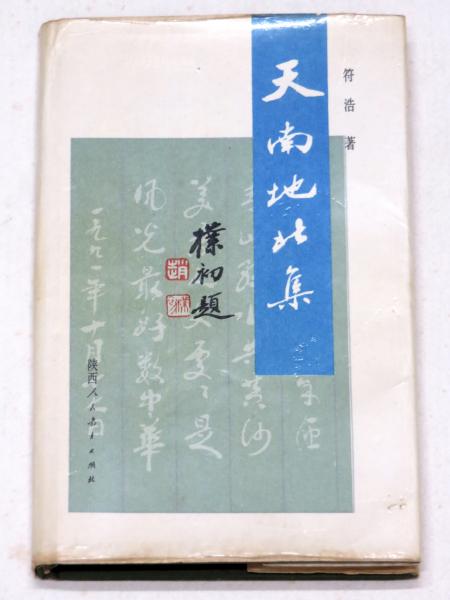 符浩著
天南地北集
樸初題
美 处处是
风光最好数中华
一九九一年十月
陕西人民教育出版社